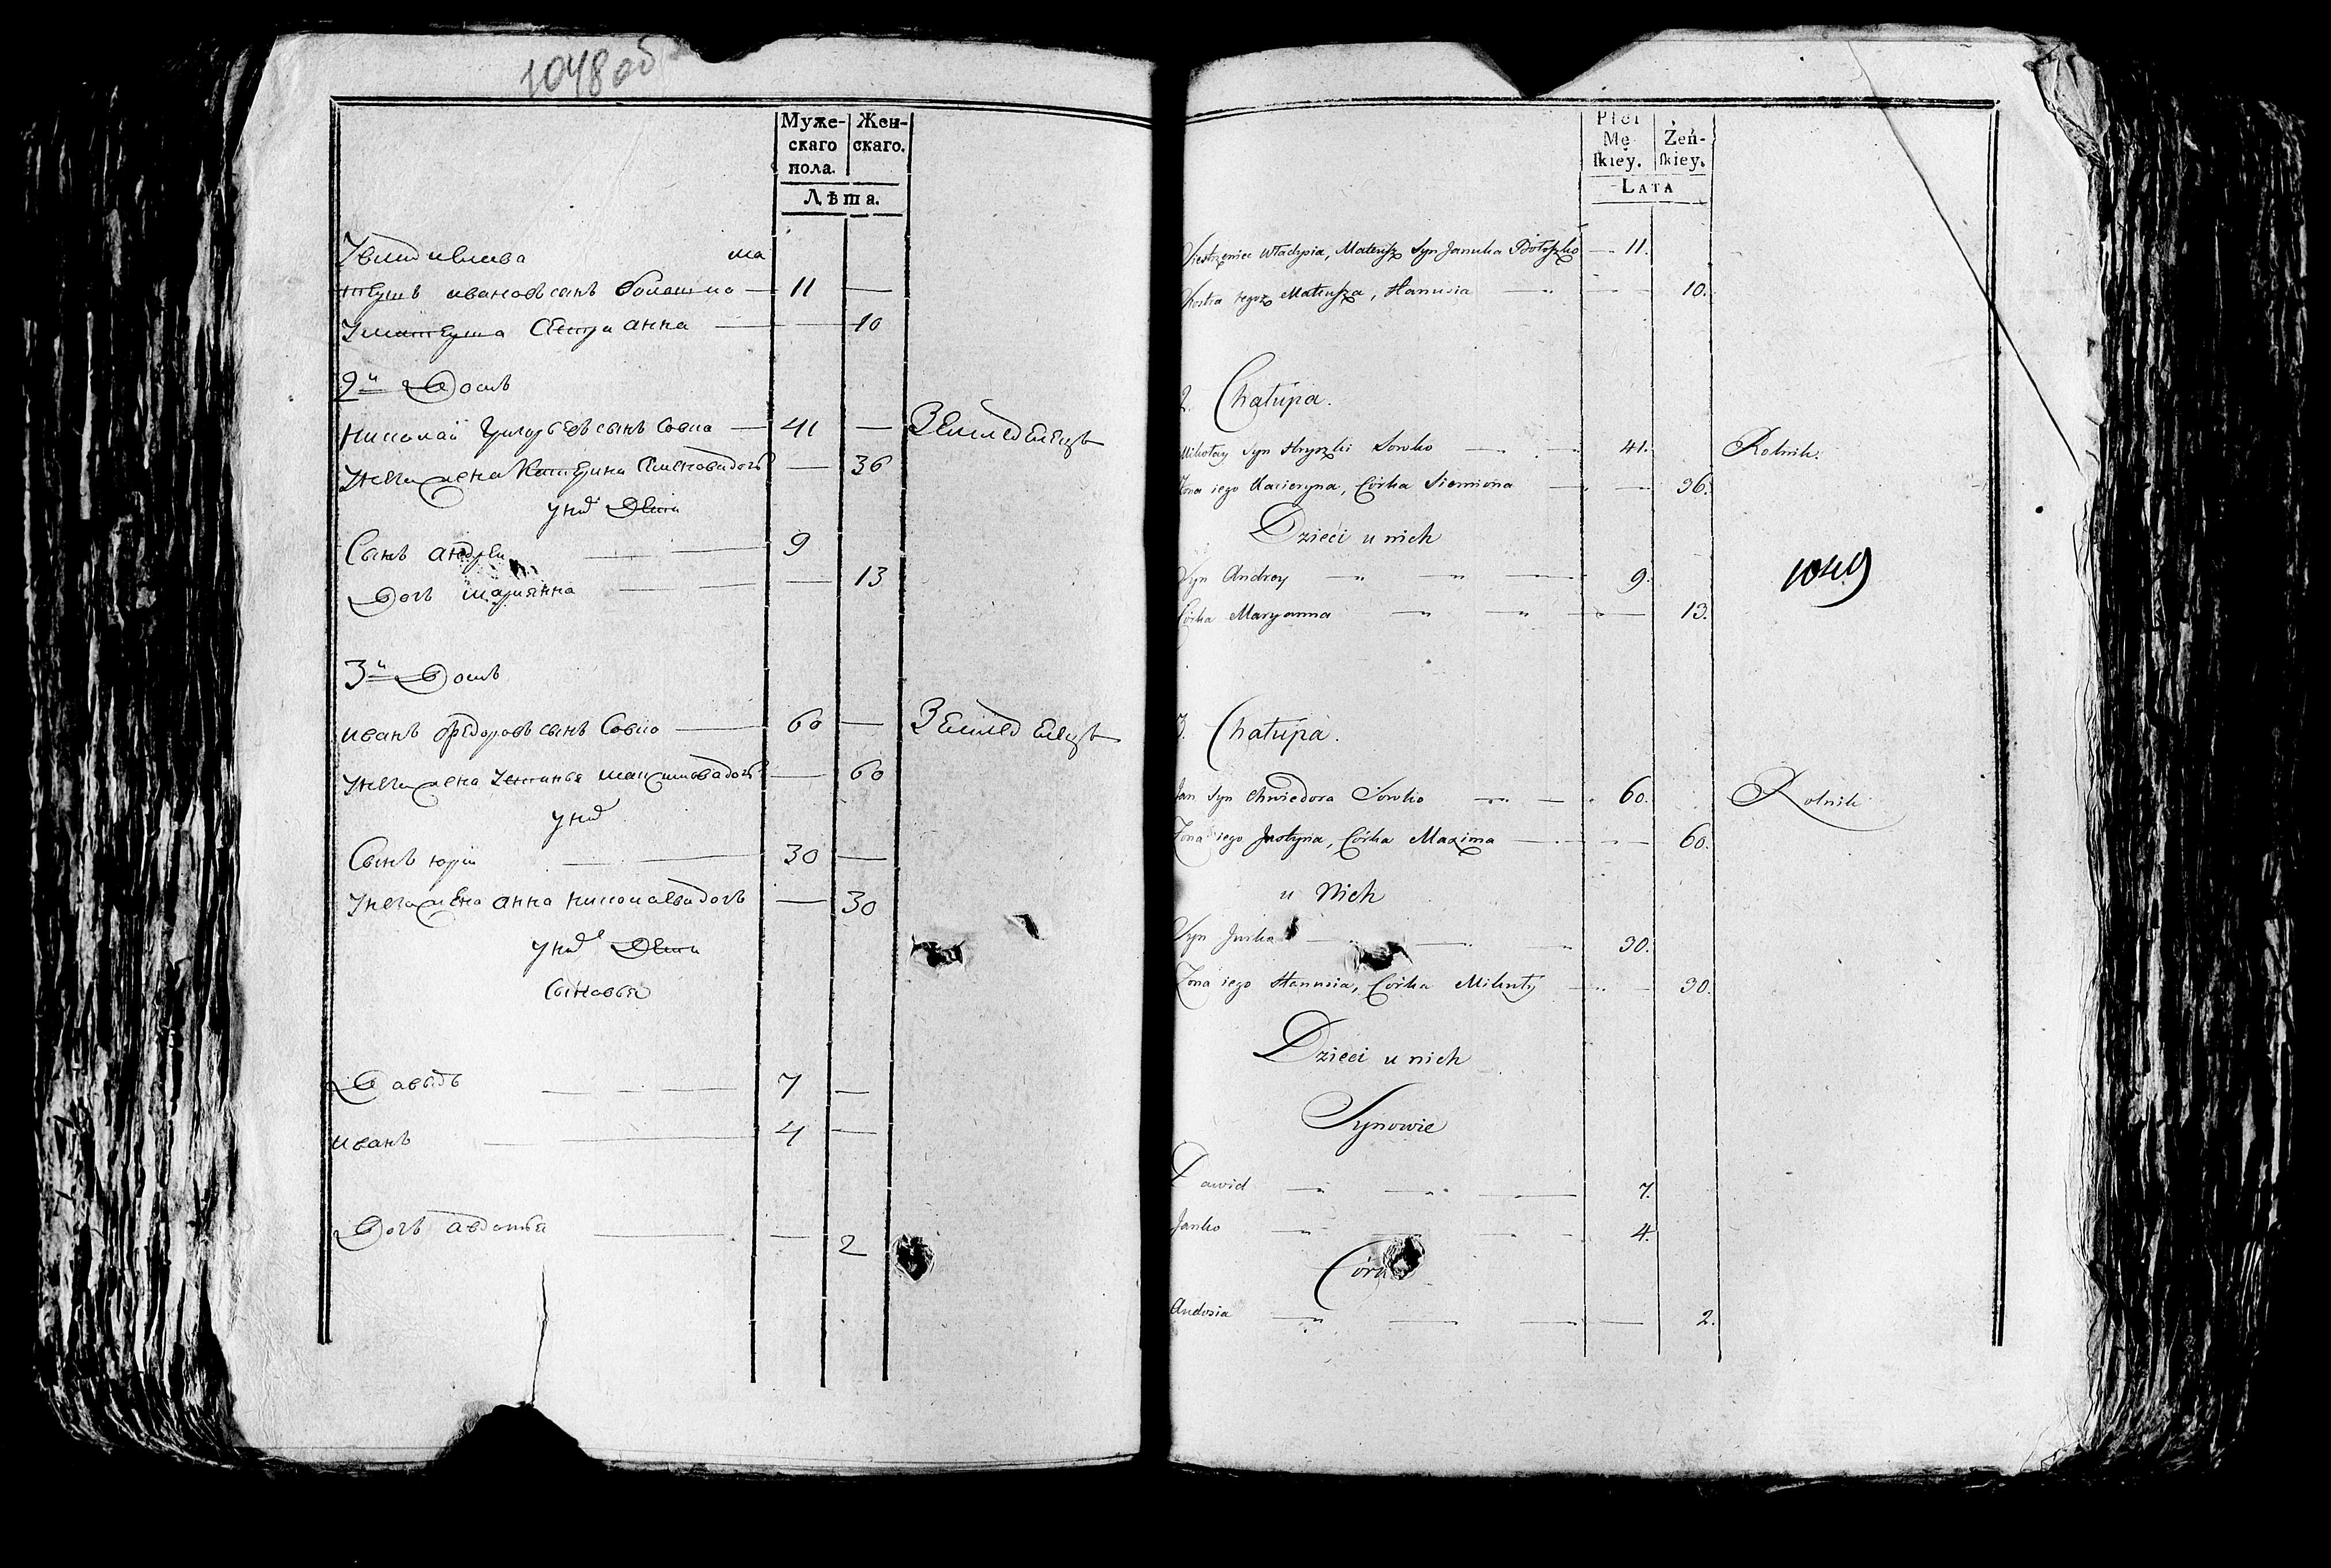 1048 об
Муже-
скаго
пола.
Жен-
скаго.
Лѣта.
ма
ивановъ сынъ — 11 —
сестра анна — — 10
2й Домъ
Николай Григорьевъ сынъ Совко — 41 — Земледелецъ
жена Катерина Семенова дочь — 36
у них Дети
Сынъ андрей — 9
Дочь марианна — 13
3й Домъ
иванъ Федоровъ сынъ Совко — 60 — Земледелецъ
жена Устинья максимова дочь — 60
у них
Сынъ юрий — 30 —
жена анна николаева дочь — 30
у них Дети
Сыновья
Давыдъ — 7 —
иванъ — 4 —
Дочь авдотья — — 2
Płci
Mę
ſkiey.
Żeń-
ſkiey.
Lata
Siestrzeniec Władysia, Mateusz Syn Januka — 11.
Siostra tegoz Mateusza, Hanusia — 10.
2. Chałupa.
Mikołay Syn Hryszki Sowko — 41. Rolnik.
Zona iego Kacieryna, Córka Siemiona — 36.
Dzieci u nich
Syn Andrey — 9.
Córka Maryanna — 13.
1049
3. Chałupa.
Jan Syn Chwiedora Sowko — 60. Rolnik
Zona iego Justyna, Córka Maxima — 60.
u Nich
Syn Jurka — 30.
Zona iego Hanusia, Córka Mikuły — 30.
Dzieci u nich
Synowie
Dawid — 7.
Janko — 4.
Audosia — 2.